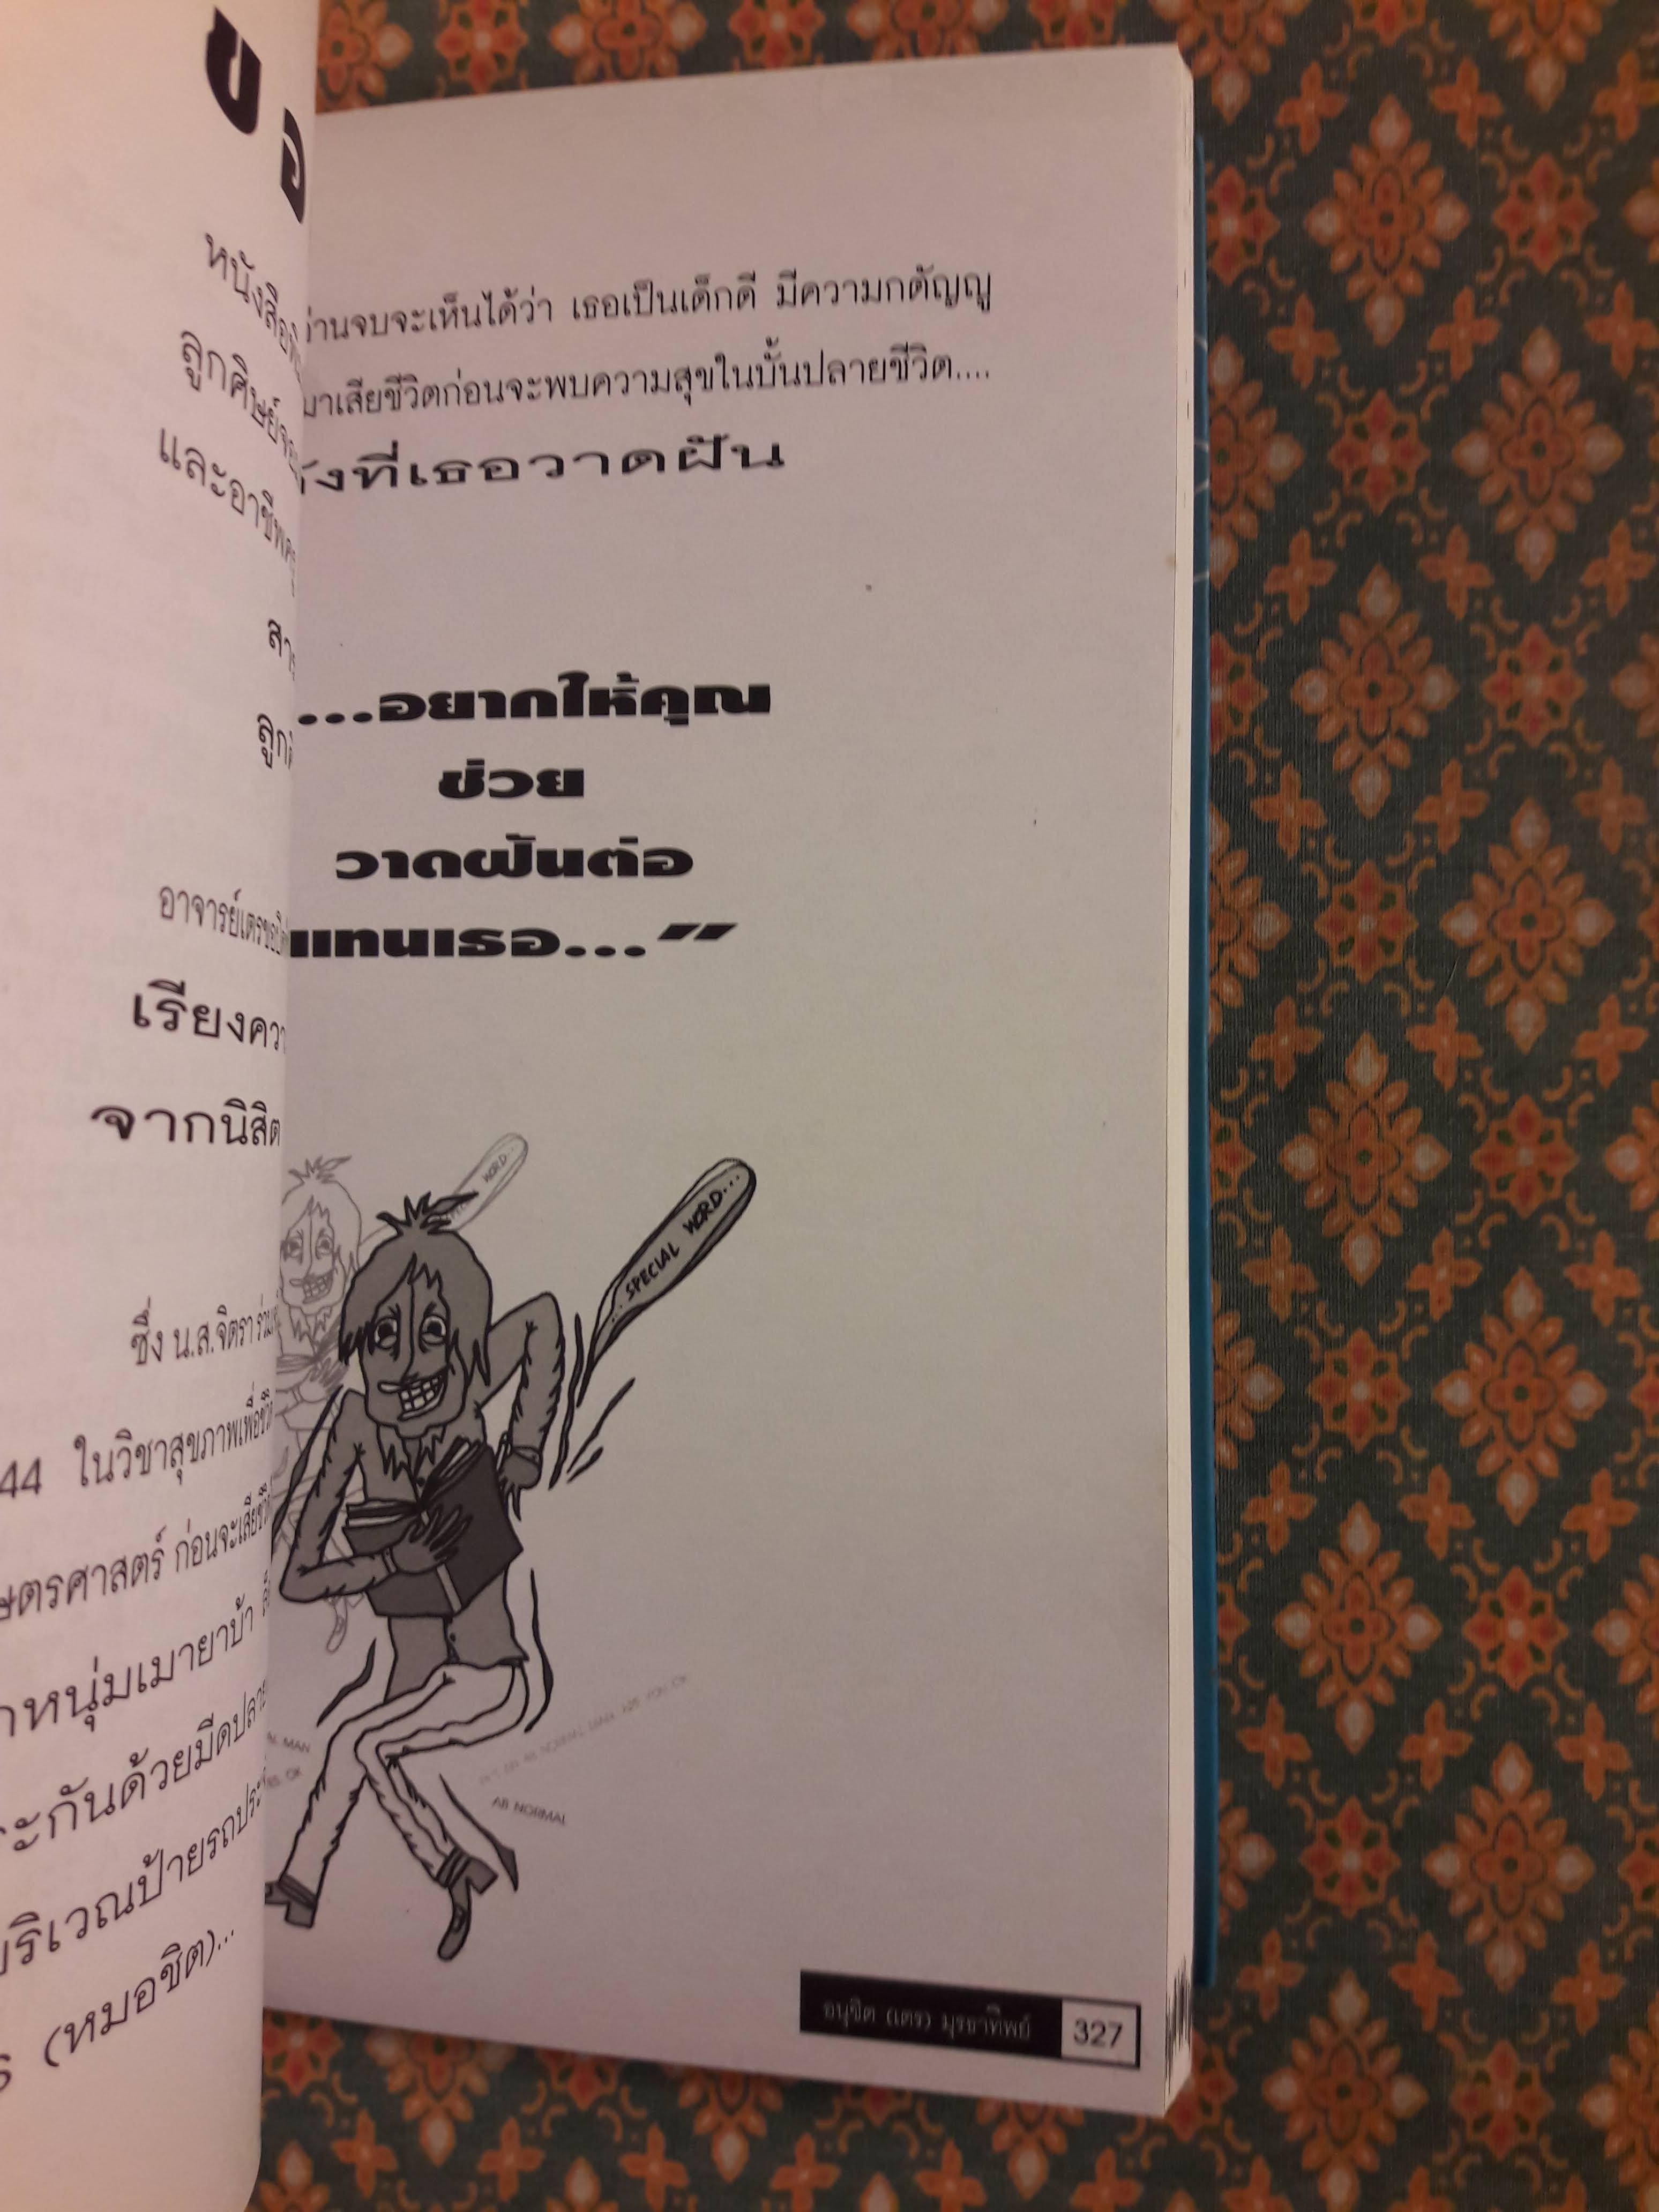 ขอ
หนังสือ
ลูกศิษย์
และอาชีพ
ลูก
อาจารย์เตรขอ
เรียงควา
จากนิสิต
ซึ่ง น.ส.จิตรา ร่วม
44 ในวิชาสุขภาพเพื่อชีวิ
ษตรศาสตร์ ก่อนจะเสียชีวิ
หนุ่มเมายาบ้า
ะกันด้วยมีดปลาย
บริเวณป้ายรถประ
(หมอชิต)...
่านจบจะเห็นได้ว่า เธอเป็นเด็กดี มีความกตัญญู
มาเสียชีวิตก่อนจะพบความสุขในบั้นปลายชีวิต....
ังที่เธอวาดฝัน
...อยากให้คุณ
ช่วย
วาดฝันต่อ
แทนเธอ..."
WORD...
..SPECIAL WORD...
AL MAN
AB NORMAL
อนุชิต (เตร) มุรธาทิพย์ 327